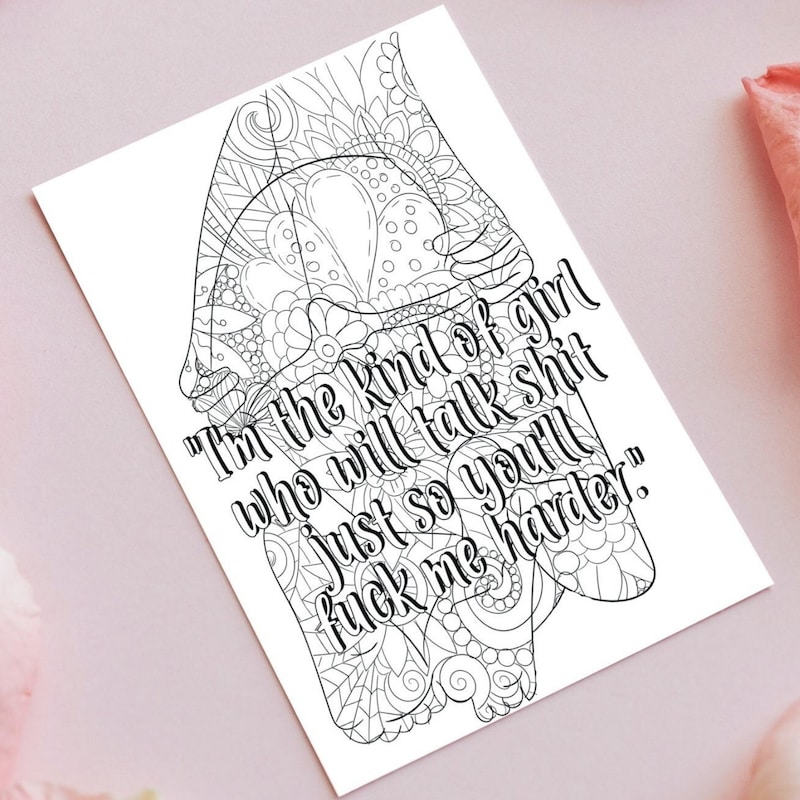 "I'm the kind of girl
who will talk shit
just so you'll
fuck me harder."